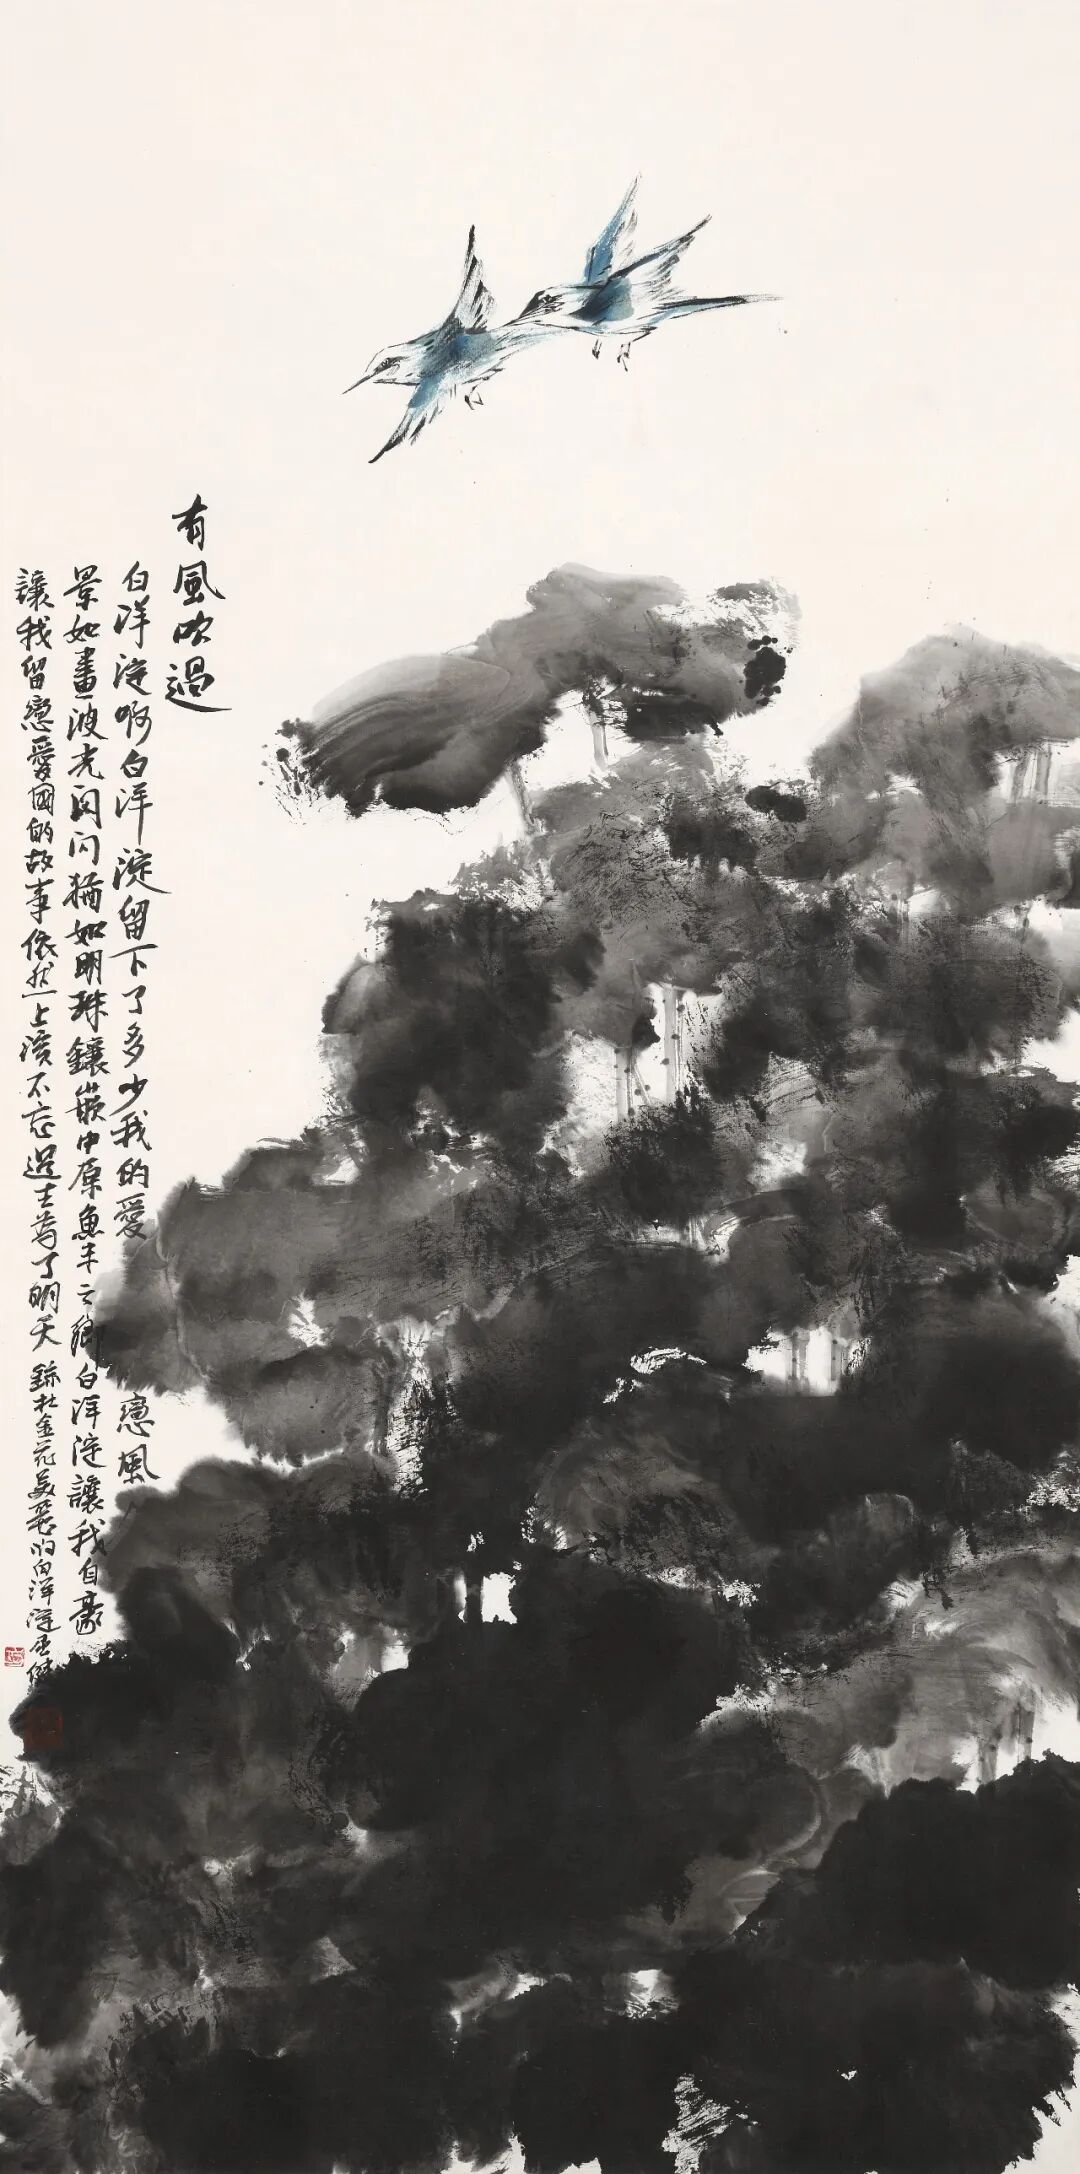 有風吹過
白洋淀啊白洋淀留下了多少我的愛戀風
景如畫波光閃閃猶如明珠鑲嵌中原魚米之鄉白洋淀讓我自豪
讓我留戀愛國的故事依然上演不忘過去為了明天 錄杜金花美麗的白洋淀